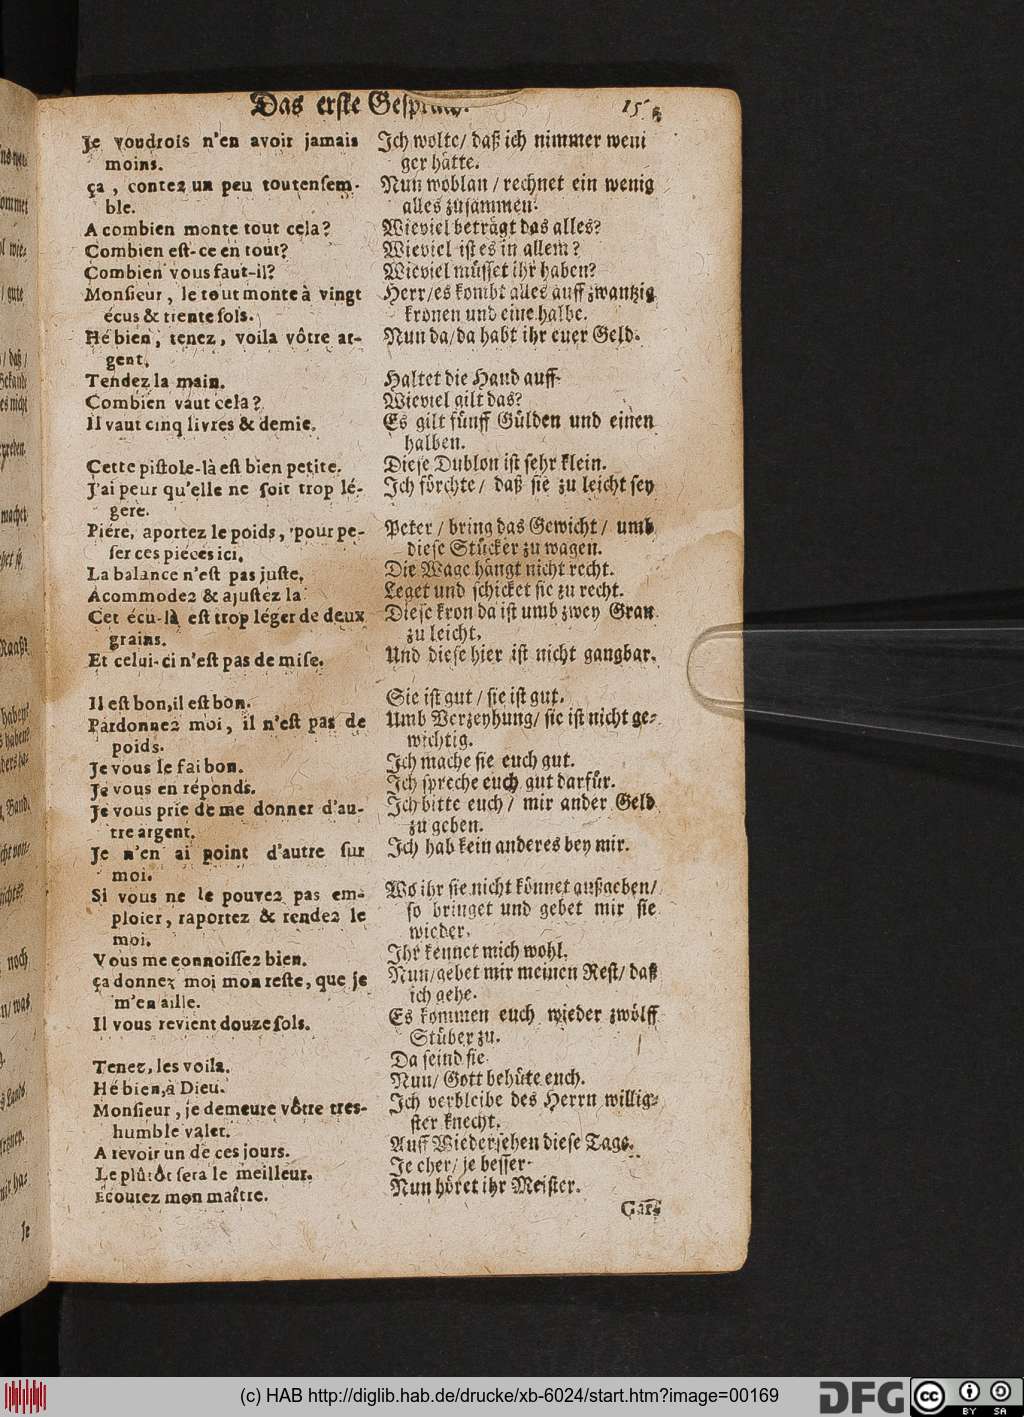 Das erste Gespräch.
Je voudrois n'en avoir jamais
moins.
ça, contez un peu toutensem-
ble.
A combien monte tout cela?
Combien est-ce en tout?
Combien vous faut-il?
Monsieur, le tout monte à vingt
écus & trente sols.
Hé bien, tenez, voila vôtre ar-
gent.
Tendez la main.
Combien vaut cela?
Il vaut cinq livres & demie.
Cette pistole-là est bien petite.
J'ai peur qu'elle ne soit trop lé-
gere.
Piére, aportez le poids, pour pe-
ser ces piéces ici.
La balance n'est pas juste.
Acommodez & ajustez la
Cet écu-là est trop léger de deux
grains.
Et celui-ci n'est pas de mise.
Il est bon, il est bon.
Pardonnez moi, il n'est pas de
poids.
Je vous le fai bon.
Je vous en réponds.
Je vous prie de me donner d'au-
tre argent.
Je n'en ai point d'autre sur
moi.
Si vous ne le pouvez pas em-
ploier, raportez & rendez le
moi.
Vous me connoissez bien.
ça donnez moi mon reste, que je
m'en aille.
Il vous revient douze sols.
Tenez, les voila.
Hé bien, à Dieu.
Monsieur, je demeure vôtre tres-
humble valet.
A revoir un de ces jours.
Le plûtôt sera le meilleur.
Ecoutez mon maître.
Ich wolte/ daß ich nimmer weni
ger hätte.
Nun woblan/ rechnet ein wenig
alles zusammen.
Wieviel beträgt das alles?
Wieviel ist es in allem?
Wieviel müsset ihr haben?
Herr/es kombt alles auff zwantzig
kronen und eine halbe.
Nun da/da habt ihr euer Geld.
Haltet die Hand auff.
Wieviel gilt das?
Es gilt fünff Gülden und einen
halben.
Diese Dublon ist sehr klein.
Ich förchte/ daß sie zu leicht sey
Peter/ bring das Gewicht/ umb
diese Stücker zu wagen.
Die Wage hängt nicht recht.
Leget und schicket sie zu recht.
Diese kron da ist umb zwey Gran
zu leicht.
Und diese hier ist nicht gangbar.
Sie ist gut/ sie ist gut.
Umb Verzeyhung/ sie ist nicht ge-
wichtig.
Ich mache sie euch gut.
Ich spreche euch gut darfür.
Ich bitte euch/ mir ander Geld
zu geben.
Ich hab kein anderes bey mir.
Wo ihr sie nicht könnet außgeben/
so bringet und gebet mir sie
wieder.
Ihr kennet mich wohl.
Nun/gebet mir meinen Rest/ daß
ich gehe.
Es kommen euch wieder zwölff
Stüber zu.
Da seind sie
Nun/ Gott behüte euch.
Ich verbleibe des Herrn willig-
ster knecht.
Auff Wiedersehen diese Tage.
Je eher/ je besser.
Nun höret ihr Meister.
(c) HAB http://diglib.hab.de/drucke/xb-6024/start.htm?image=00169
DFG
cc
BY SA